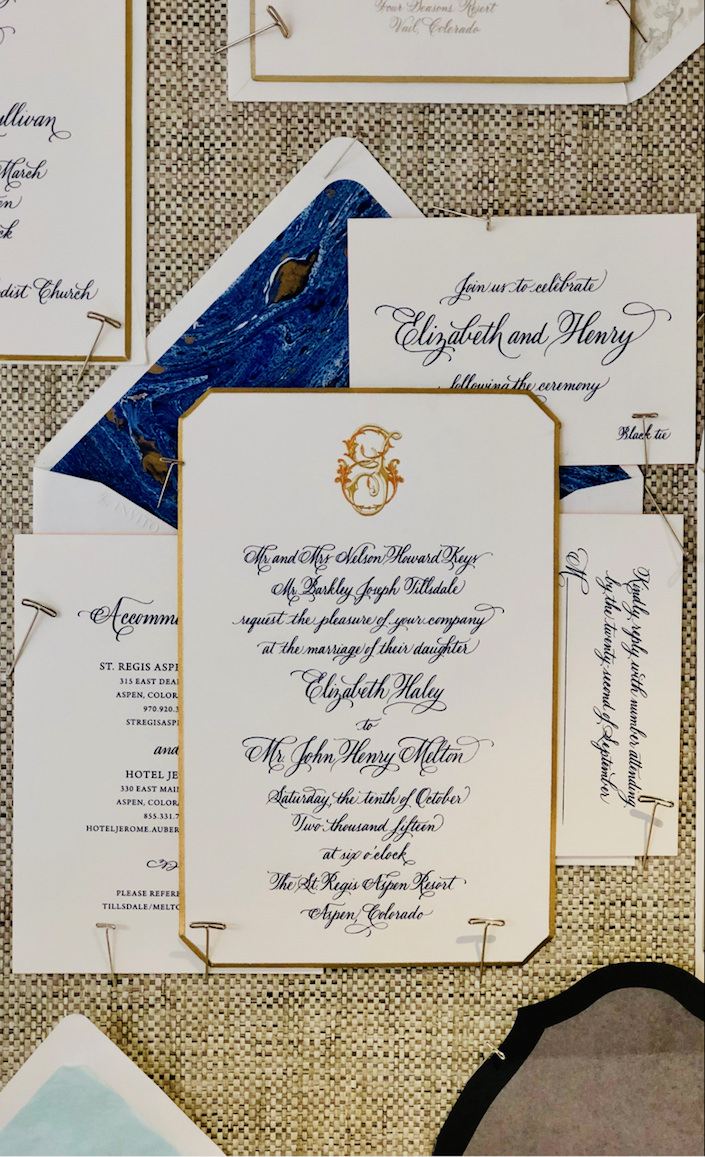 Four Seasons Resort
Vail, Colorado
ullivan
March
en
ck
dist Church
Join us to celebrate
Elizabeth and Henry
following the ceremony
Black tie
Mr and Mrs Nelson Howard Keys
Mr Barkley Joseph Tillsdale
request the pleasure of your company
at the marriage of their daughter
Elizabeth Haley
to
Mr John Henry Melton
Saturday, the tenth of October
Two thousand fifteen
at six o'clock
The St Regis Aspen Resort
Aspen, Colorado
Accomm
ST. REGIS ASPE
315 EAST DEA
ASPEN, COLOR
970.920.3
STREGISASP
and
HOTEL JE
330 EAST MAIN
ASPEN, COLORA
855.331.7
HOTELJEROME.AUBER
PLEASE REFERE
TILLSDALE/MELTO
Kindly reply with number attending
by the twenty second of September
M